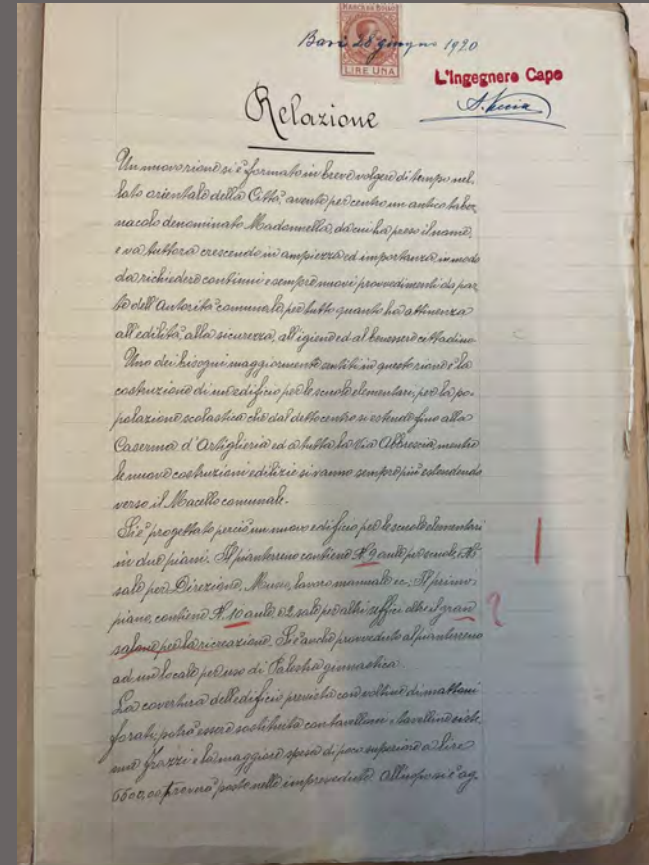 MARCA DA BOLLO
LIRE UNA
Bari 28 giugno 1920
L'Ingegnere Capo
Relazione
Un nuovo rione si è formato in breve volgere di tempo nel
lato orientale della Città, avente per centro un antico taber
nacolo denominato Madonnella, da cui ha preso il nome,
e va tuttora crescendo in ampiezza ed importanza in modo
da richiedere continui e sempre nuovi provvedimenti da par
te dell'Autorità comunale per tutto quanto ha attinenza
all'edilità, alla sicurezza, all'igiene ed al benessere cittadino
Uno dei bisogni maggiormente sentiti in questo rione è la
costruzione di un edificio per le scuole elementari, per la po-
polazione scolastica che dal detto centro si estende fino alla
Caserma d'Artiglieria ed a tutta la Via Abbrescia mentre
le nuove costruzioni edilizie si vanno sempre più estendendo
verso il Macello comunale.
Si è progettato perciò un nuovo edificio per le scuole elementari
in due piani. Il pianterreno contiene N. 9 aule per scuole,
sale per Direzione, Museo, lavoro manuale ec. Il primo
piano, contiene N. 10 aule, e 2 sale per altri uffici oltre il gran
salone per la ricreazione. Si è anche provveduto al pianterreno
ad un locale per uso di Palestra ginnastica.
La covertura dell'edificio prevista con voltine di mattoni
forati, potrà essere sostituita con tavelloni e tavelline siste
ma Frazzi e la maggiore spesa di poco superiore a lire
troverà posto nelle imprevedute. All'uopo si è ag